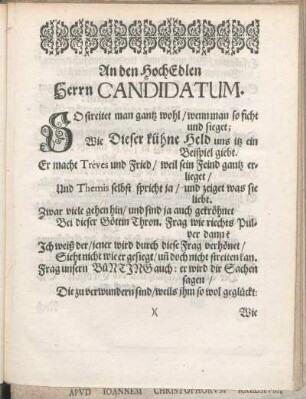 An den HochEdlen
Herrn CANDIDATUM.
SO streitet man gantz wohl / wenn man so ficht
und sieget;
Wie Dieser kühne Held uns itz ein
Beispiel giebt.
Er macht Tréves und Fried / weil sein Feind gantz er-
lieget /
Und Themis selbst spricht ja / und zeiget was sie
liebt.
Zwar viele gehen hin / und sind ja auch gekröhnet
Bei dieser Göttin Thron. Frag wie riechts Pul-
ver dann?
Ich weiß der / jener wird durch diese Frag verhönet /
Sieht nicht wie er gesiegt / uñ doch nicht streiten kan.
Frag unsern BüNTING auch: er wird dir Sachen
sagen /
Die zu verwundern sind / weils ihm so wol geglückt:
)(
Wie
APVD IOANNEM CHRISTOPHORVM